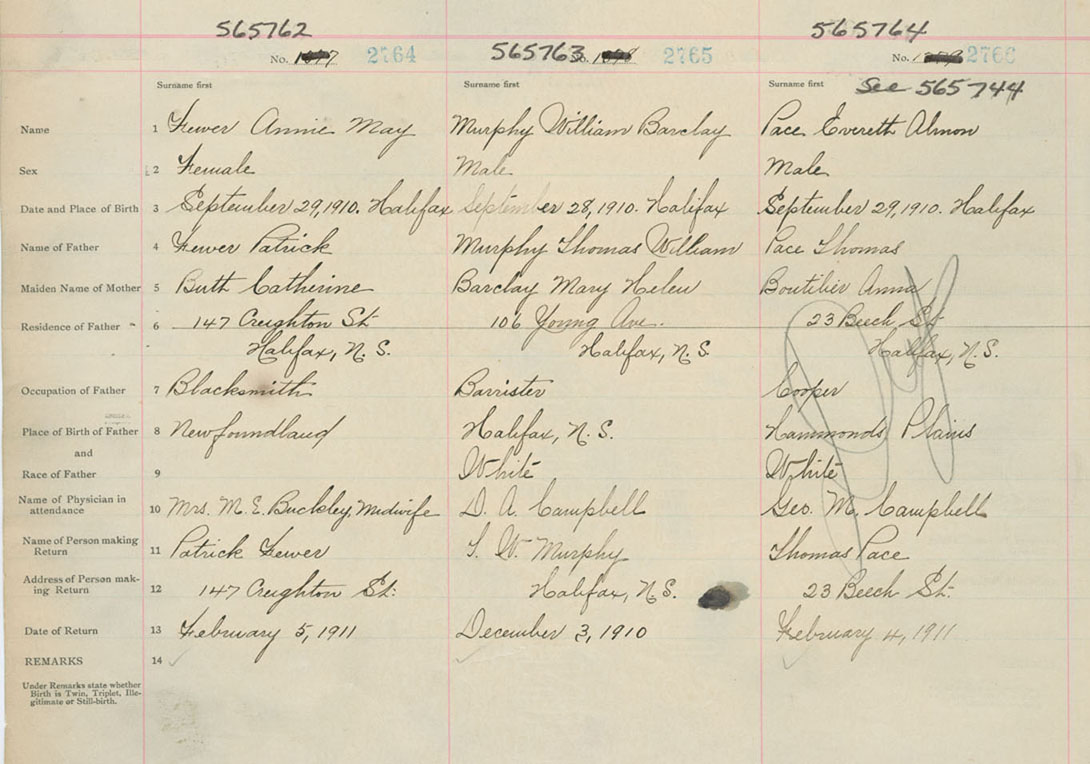 565762 565763 565764
No. 2764 No. 2765 No. 2766
Surname first Surname first Surname first See 565744
Name 1 Fewer Annie May Murphy William Barclay Pace Everett Almon
Sex 2 Female Male Male
Date and Place of Birth 3 September 29, 1910. Halifax September 28, 1910. Halifax September 29, 1910. Halifax
Name of Father 4 Fewer Patrick Murphy Thomas William Pace Thomas
Maiden Name of Mother 5 Catherine Barclay Mary Helen Boutilier Anna
Residence of Father 6 147 Creighton St. 106 Young Ave. 23 Beech St.
Halifax, N.S. Halifax, N.S. Halifax, N.S.
Occupation of Father 7 Blacksmith Barrister Cooper
Place of Birth of Father 8 Newfoundland Halifax, N.S. Hammonds Plains
and
Race of Father 9 White White
Name of Physician in
attendance 10 Mrs. M. E. Buckley, Midwife D. A. Campbell Geo. M. Campbell
Name of Person making
Return 11 Patrick Fewer W. Murphy Thomas Pace
Address of Person mak-
ing Return 12 147 Creighton St. Halifax, N.S. 23 Beech St.
Date of Return 13 February 5, 1911 December 3, 1910 February 4, 1911
REMARKS 14
Under Remarks state whether
Birth is Twin, Triplet, Ille-
gitimate or Still-birth.